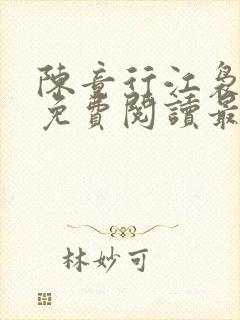 陳音行江裊
免費閱讀最
林妙可